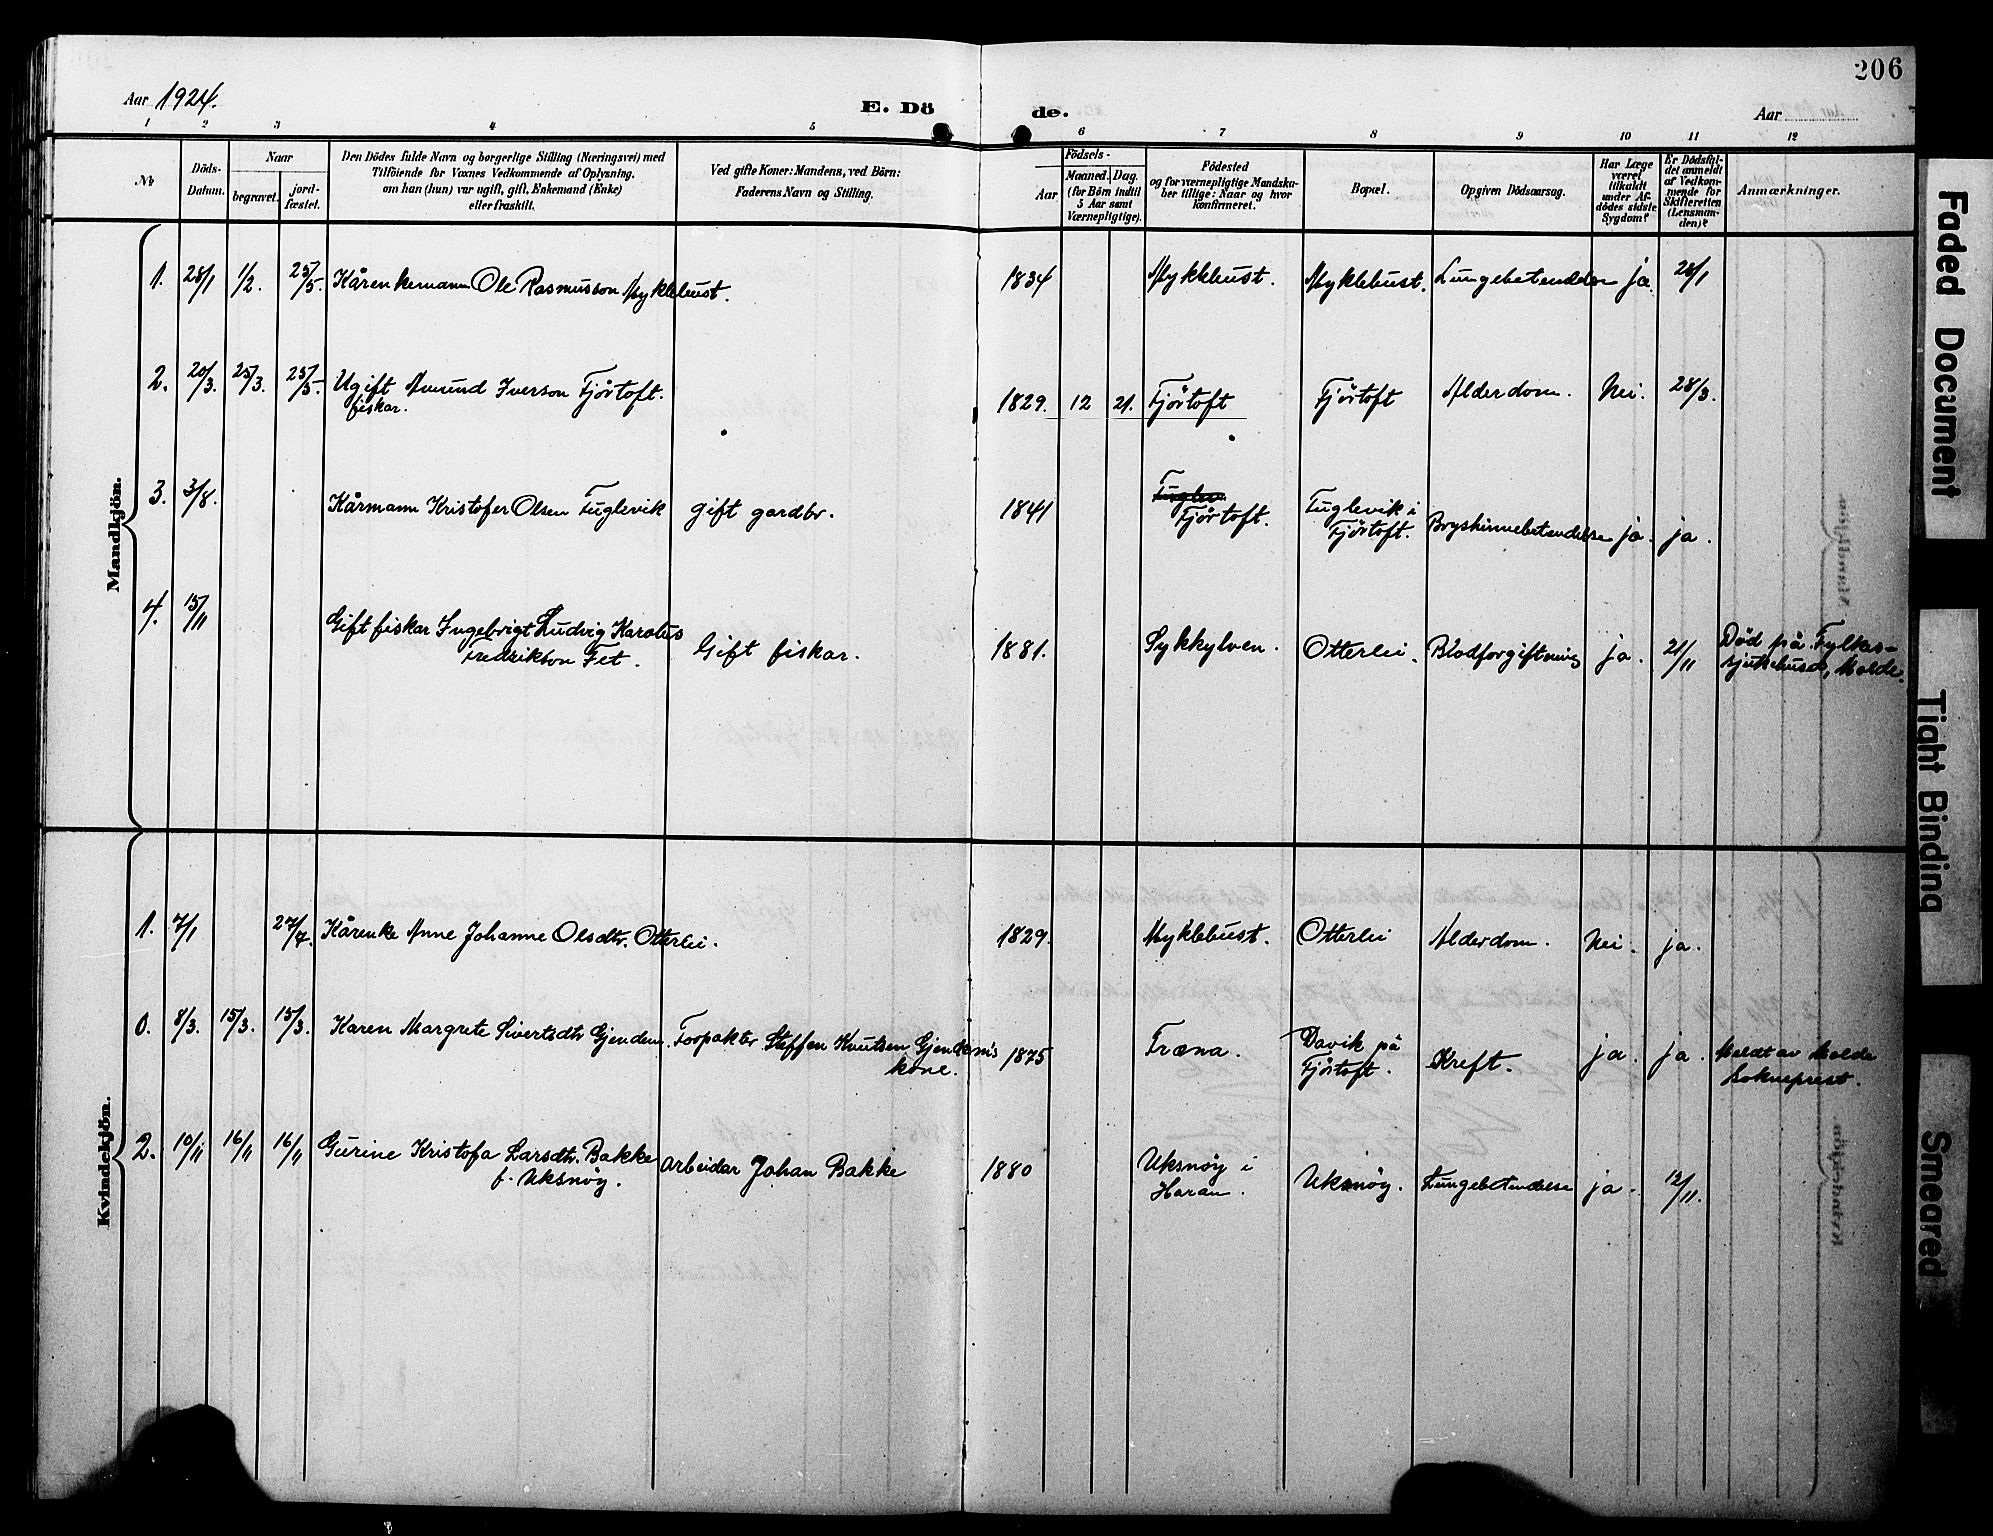 206
Aar 1924.
E. Döde.
Aar
1 2 3 4 5 6 7 8 9 10 11 12
No
Döds-Datum.
Naar
begravet.
jord-fæstet.
Den Dödes fulde Navn og borgerlige Stilling (Næringsvei) med
Tilföiende for Voxnes Vedkommende af Oplysning,
om han (hun) var ugift, gift, Enkemand (Enke)
eller fraskilt.
Ved gifte Koner: Mandens, ved Börn:
Faderens Navn og Stilling.
Födsels-
Aar
Maaned. Dag.
(for Börn indtil
5 Aar samt
Værnepligtige).
Födested
og for værnepligtige Mandska-
ber tillige: Naar og hvor
konfirmeret.
Bopæl.
Opgiven Dödsaarsag.
Har Læge
været
tilkaldt
under Af-
dödes sidste
Sygdom?
Er Dödsfal-
det anmeldt
af Vedkom-
mende for
Skifteretten
(Lensman-
den)?
Anmærkninger.
Mandkjön.
1. 28/1 1/2. 25/5. Kårenkemann Ole Rasmusson Myklebust. 1834 Myklebust. Myklebust. Lungebetendelse ja. 28/1
2. 20/3. 25/3. 25/5. Ugift Amund Iverson Fjörtoft. 1829. 12 21. Fjörtoft Fjörtoft Alderdom. Nei. 28/3.
fiskar.
3. 3/8. Kårmann Kristofer Olsen Fuglevik gift gardbr. 1841 Fjörtoft. Fuglevik i Bryshinnebetendelse ja. ja.
Fjörtoft.
4. 15/11 Gift fiskar Ingebrigt Ludvig Karolus Gift fiskar. 1881. Sykkylven. Otterlei. Blodforgiftning ja. 21/11 Död på Fylkes-
Fredrikson Fet. sjukehuset, Molde.
Kvindekjön.
1. 7/1 27/7. Kårenke Anne Johanne Olsdtr. Otterlei. 1829. Myklebust. Otterlei Alderdom. Nei. ja.
0. 8/3. 15/3. 15/3. Karen Margrete Sivertsdtr Gjendem. Forpakter Steffen Knutsen Gjendem's 1875 Træna. Davik på Kreft. ja. ja. Meldt av Molde
kone. Fjörtoft. sokneprest.
2. 10/11 16/11 16/11 Gurine Kristofa Larsdtr. Bakke arbeidar Johan Bakke 1880 Uksnöy i Uksnöy. Lungebetendelse ja. 12/11.
f. Uksnöy. Haram.
Faded Document
Tight Binding
Smeared